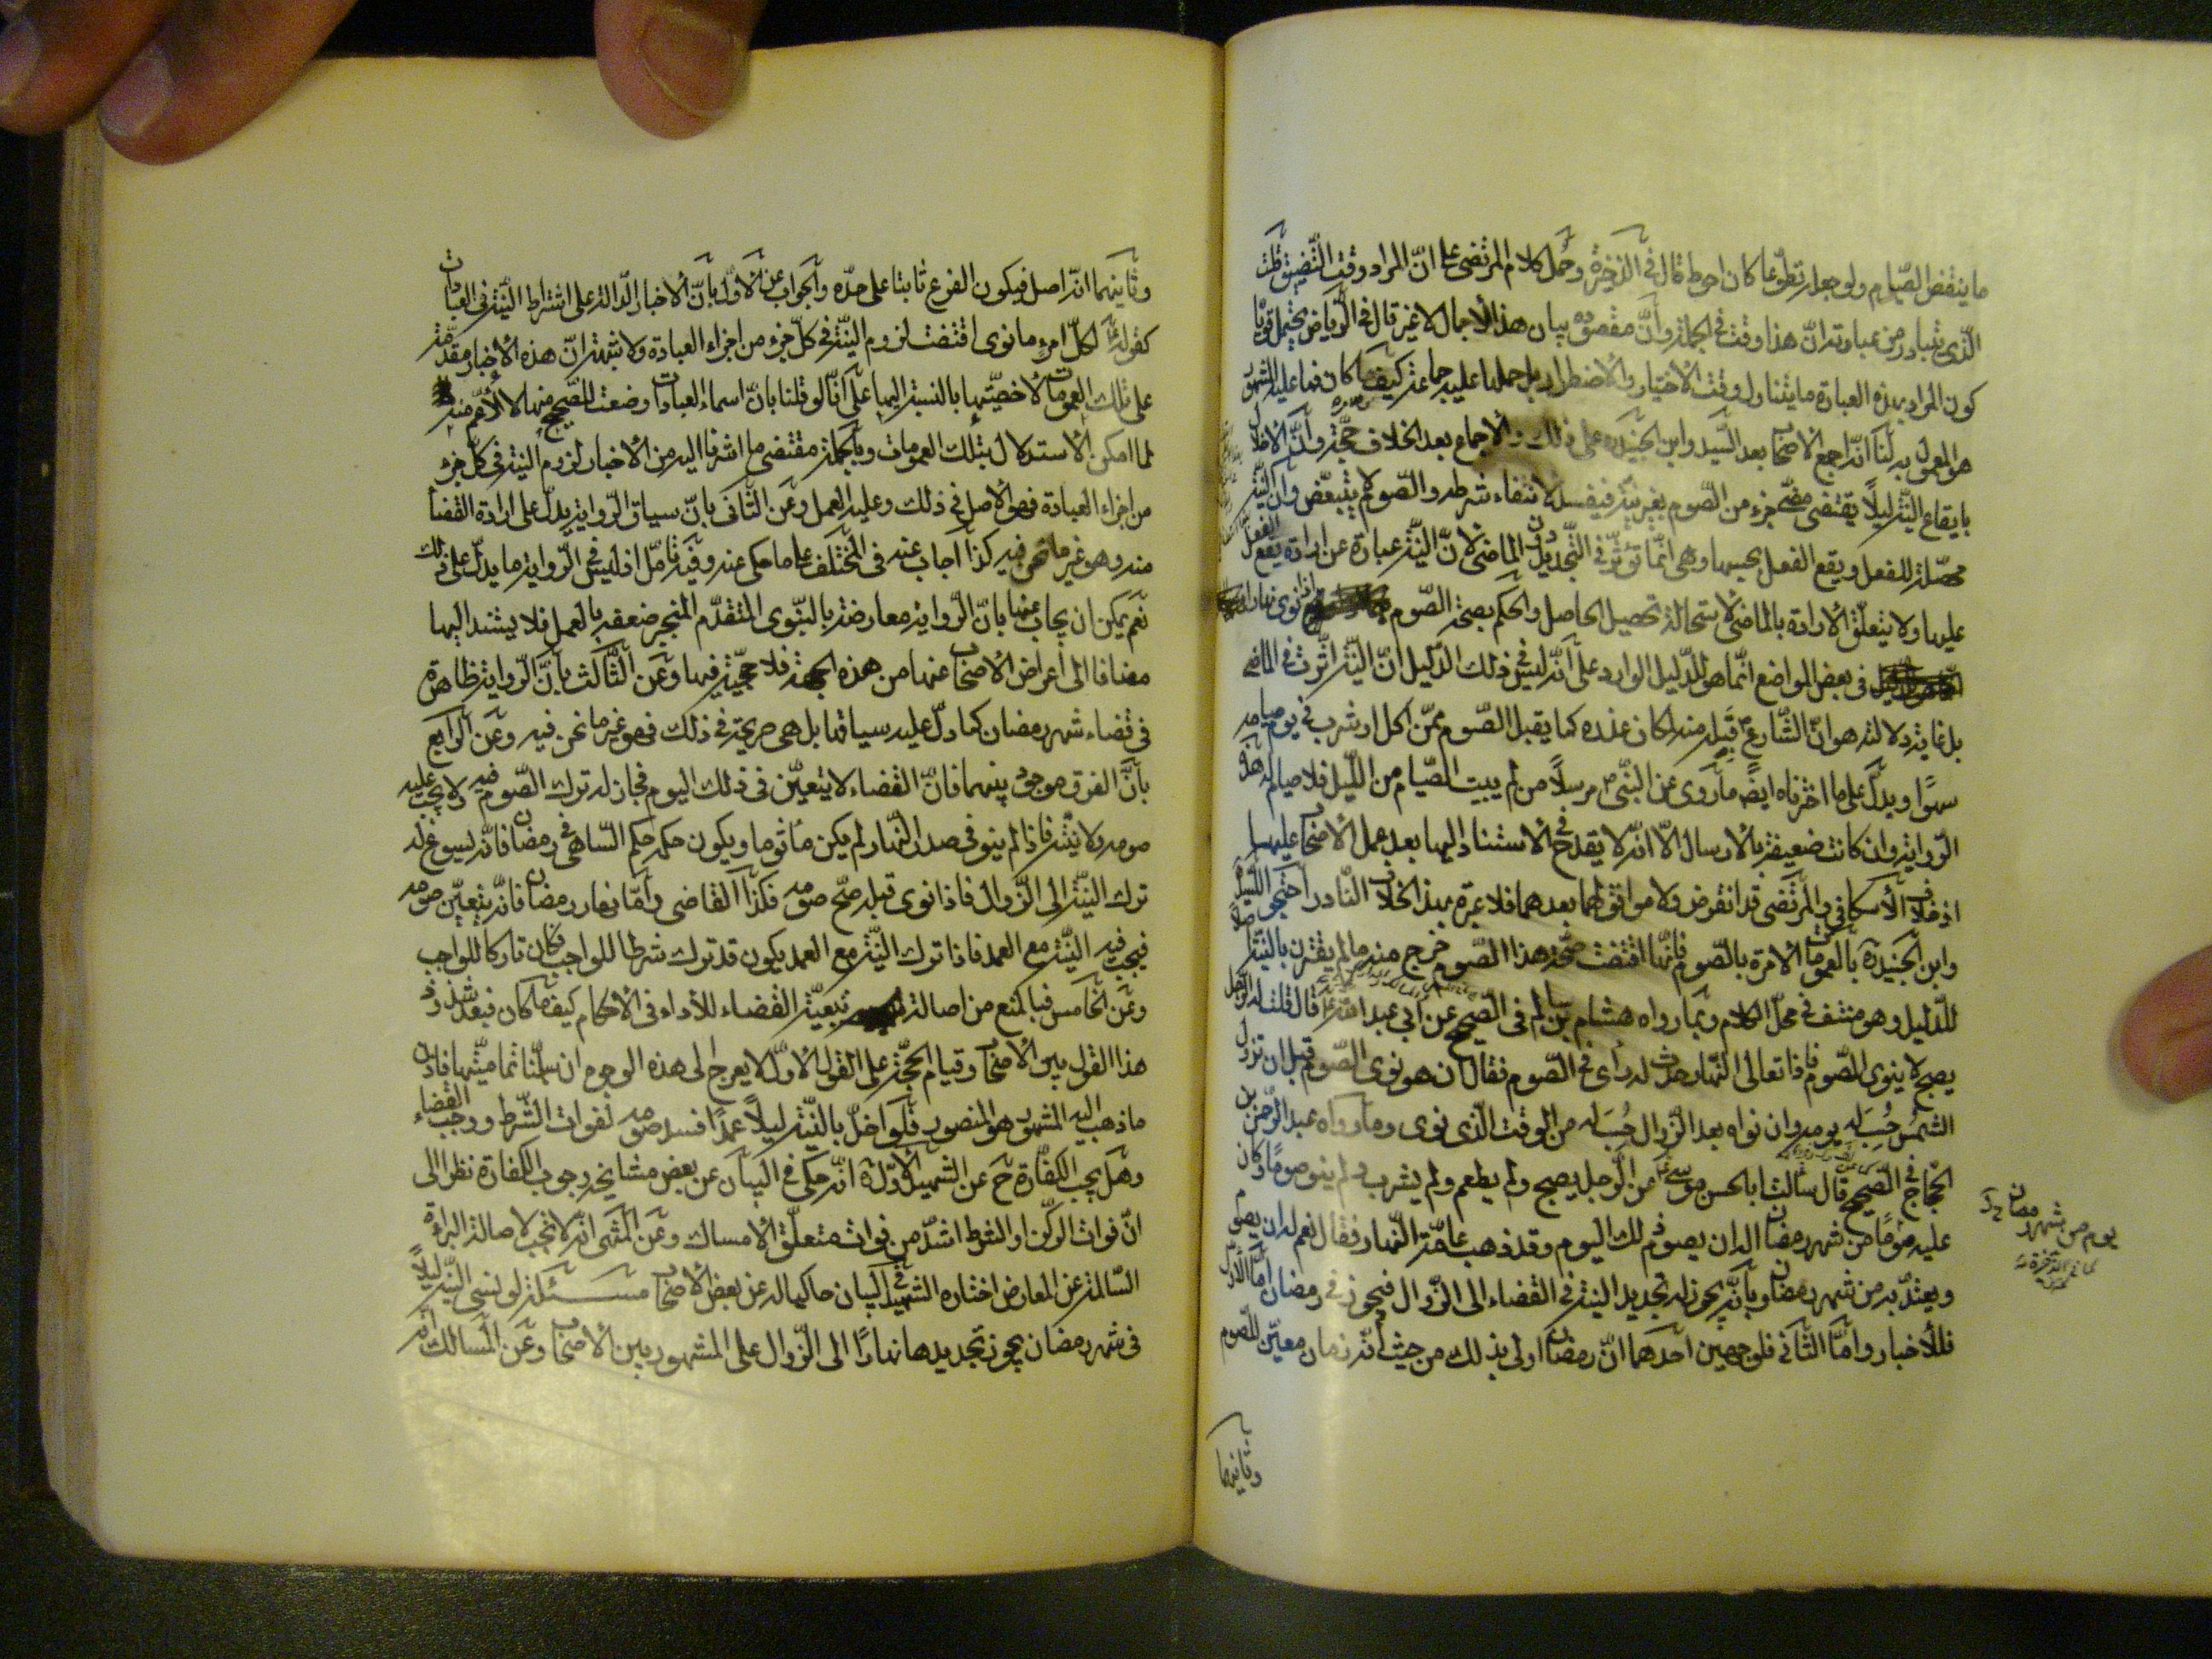 ما ينقض الصّيام ولو جعله تطوّعا كان احوط قال في الذخيرة وحمل كلام المرتضى على انّ المراد وقت التّضيق
الّذي يتبادر من عبارته انّ هذا وقت في الجملة وأنّ مقصوده بيان هذا الاجمال لا غير قال في الرّياض يحتمل قويّا
كون المراد بهذه العبارة ما يتناول وقت الاختيار والاضطرار بل حملها عليه جماعة كيف كان فما عليه المشهور
هو المعمول به لنا انّه اجمع الاصحاب بعد السّيد وابن الجنيد ره على ذلك والاجماع بعد الخلاف حجّة وأنّ الاخلال
بايقاع النيّة ليلًا يقتضى مضى جزء من الصّوم بغير نيّة فيفسد لانتفاء شرطه والصّوم لا يتبعّض وأنّ النيّة
مخصّلة للفعل ويقع الفعل بحسبها وهي انّما تؤثّر في التّجديد دون الماضي لانّ النيّة عبارة عن ارادة يقع الفعل
عليها ولا يتعلّق الارادة بالماضي لاستحالة تحصيل الحاصل والحكم بصحّة الصّوم اذا نوى نهارا
في بعض المواضع انّما هو للدّليل الوارد على أنّه ليس في ذلك الدّليل انّ النيّة اثّرت في الماضي
بل غاية دلالته هو انّ الشّارع قبله منه لكان عذره كما يقبل الصّوم ممّن اكل او شرب في يوم صيامه
سهوًا ويدلّ على ما اخترناه ايضًا ما روى عن النبّى ص مرسلًا من لم يبيت الصّيام من اللّيل فلا صيام له هذه
الرّواية وان كانت ضعيفة بالارسال الّا انّه لا يقدح في الاستناد اليها بعد عمل الاصحاب عليها
اذ خلاف الأسكافي والمرتضى قد انقرض ولا موافق لهما بعدهما فلا عبرة بهذا الخلاف النّادر احتجّ السيّد
وابن الجنيد ره بالعمومات الآمرة بالصّوم فإنّها اقتضت صحّة هذا الصّوم خرج منه ما لم يقترن بالنيّة اصلًا
للدّليل وهو منتف في محلّ الكلام وبما رواه هشام بن سالم في الصّحيح عن ابي عبد الله ع قال قلت له الرّجل
يصبح لا ينوى الصّوم فاذا تعالى النّهار حدث له رأى في الصّوم فقال ان هو نوى الصّوم قبل ان تزول
الشمس حُسِبَ له يومه وان نواه بعد الزّوال حُسِبَ له من الوقت الّذي نوى وما رواه عبد الرّحمن بن
الحجّاج في الصّحيح قال سألت ابا الحسن موسى ع من الرّجل يصبح ولم يطعم ولم يشرب ولم ينو صومًا وكان
عليه يومًا من شهر رمضان اله ان يصوم ذلك اليوم وقد ذهب عامّة النّهار فقال نعم له ان يصوم
ويعتدّ به من شهر رمضان وبأنّه يجوز له تجديد النيّة في القضاء الى الزّوال فيجوز في رمضان أمّا الأوّل
فللأخبار وامّا الثّاني فلوجهين احدهما انّ رمضان اولى بذلك من حيث أنّه زمان معيّن للصّوم
يوم من شهر رمضان
وثانيهما
وثانيهما انّه اصل فيكون الفرع ثابتا على حدّه والجواب عن الاوّل بأنّ الاخبار الدّالة على اشتراط النيّة في العبادات
كقوله لكلّ امرءٍ ما نوى اقتضت لزوم النيّة في كلّ جزء من اجزاء العبادة ولا شبهة انّ هذه الأخبار مقدّمة
على تلك العمومات لأخصيّتها بالنسبة اليها على أنّا لو قلنا بانّ اسماء العبادات وضعت للصّحيح منها لا الأعمّ منه
لما امكن الاستدلال بتلك العمومات وبالجملة مقتضى ما اشرنا اليه من الأخبار لزوم النيّة في كلّ جزء
من اجزاء العبادة فهو الاصل في ذلك وعليه العمل وعن الثّاني بانّ سياق الرّواية يدلّ على ارادة القضاء
منه وهو غير ما نحن فيه كذا اجاب عنه في المختلف على ما حكى عنه وفيه تأمّل اذ ليس في الرّواية ما يدلّ على ذلك
نعم يمكن ان يجاب عنها بانّ الرّواية معارضة بالنبّوي المتقدّم المنجبر ضعفه بالعمل فلا يستند اليها
مضافا الى أعراض الاصحاب عنها من هذه الجهة فلا حجّية فيها وعن الثّالث بأنّ الرّواية ظاهرة
في قضاء شهر رمضان كما دلّ عليه سياقها بل هي صريحة في ذلك فهو غير ما نحن فيه وعن الرّابع
بأنّ الفرق موجود بينهما فانّ القضاء لا يتعيّن في ذلك اليوم فجاز له ترك الصّوم فيه ولا يجب عليه
صومه ولا نيّته فاذا لم ينو في صدر النّهار لم يكن مأثوما ويكون حكمه حكم السّاهي في رمضان فانّه يسوغ له
ترك النيّة الى الزّوال فاذا نوى قبله صحّ صومه فكذا القاضي وأمّا نهار رمضان فانّه يتعيّن صومه
فيجب فيه النيّة مع العمد فاذا ترك النيّة مع العمد يكون قد ترك شرطا للواجب فكان تاركا للواجب
وعن الخامس فبالمنع من اصالة تبعيّة القضاء للأداء في الاحكام كيف ما كان فبعد شذوذ
هذا القول بين الاصحاب وقيام الحجّة على القول الاوّل لا يعرج الى هذه الوجوه ان سلّمنا تماميّتها فاذن
ما ذهب اليه المشهور هو المنصور فلو اخلّ بالنيّة ليلًا عمدًا فسد صومه لفوات الشّرط ووجب القضاء
وهل يجب الكفّارة ح عن الشهيد الاوّل ره انّه حكى في البيان عن بعض مشايخه وجوب الكفارة نظرا الى
انّ فوات الرّكن او الشرط اشدّ من فوات متعلّق الامساك وعن المنتهى انّه لا تجب لاصالة البراءة
السّالمة عن المعارض اختاره الشهيد في البيان حاكيا له عن بعض الاصحاب مسئلة لو نسى النيّة ليلًا
في شهر رمضان يجوز تجديدها نهارًا الى الزّوال على المشهور بين الاصحاب وعن المسالك انّه